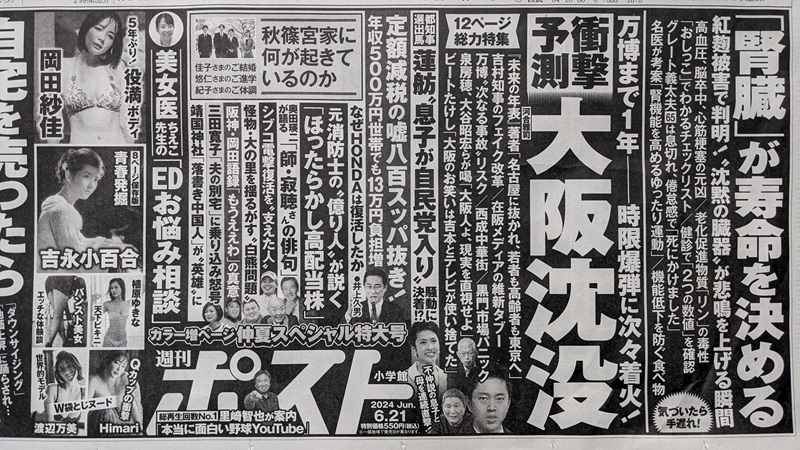 「腎臓」が寿命を決める
紅麹被害で判明!“沈黙の臓器”が悲鳴を上げる瞬間
高血圧、脳卒中、心筋梗塞の元凶/老化促進物質「リン」の毒性
「おしっこ」でわかるチェックリスト/健診で「2つの数値」を確認
グレート義太夫は息切れ、倦怠感で「死にかけました」
名医が考案「腎機能を高めるゆったり運動」/機能低下を防ぐ食べ物
気づいたら手遅れ!
万博まで1年――時限爆弾に次々着火!
12ページ総力特集
衝撃予測
大阪沈没
『未来の年表』著者
河合雅司
「名古屋に抜かれ、若者も高齢者も東京へ」
吉村知事のフェイク改革/在阪メディアの維新タブー
万博“次なる事故”リスク/西成中華街/黒門市場パニック
泉房穂、大谷昭宏らが喝「大阪人よ、現実を直視せよ」
ビートたけし「大阪のお笑いは吉本とテレビが使い捨てた」
都知事選出馬
蓮舫“息子が自民党入り”騒動に決着!?
不仲説の息子と「母子連続攻撃」
定額減税の嘘八百スッパ抜き!
年収500万円世帯でも13万円負担増
なぜHONDAは復活したか
●井上久男
秋篠宮家に何が起きているのか
佳子さまのご結婚
悠仁さまのご進学
紀子さまのご体調
元消防士の「億り人」が説く「ほったらかし高配当株」
奥田瑛二が語る「師・寂聴さんの俳句」
シブコ電撃復活を“支えた人”
怪物・大の里を揺るがす“白熊問題”
阪神・岡田語録「もうええわ」の真意
三田寛子「夫の別宅」に乗り込み怒号
靖国神社「落書き中国人」が“英雄”に
美女医ちえこ先生の「EDお悩み相談」
5年ぶり!役満ボディ
岡田紗佳
8ページ保存版
青春発掘
吉永小百合
パンスト美女
エッチな体験談
植原ゆきな
天下ビキニ
W袋とじヌード
世界的モデル
渡辺万美
Qカップの衝撃
Himari
カラー増ページ仲夏スペシャル特大号
週刊ポスト
小学館
2024 Jun.
6.21
特別価格550円(税込)
総再生回数No.1
里崎智也が案内
「本当に面白い野球YouTube」
自宅を売ったら
「ダウンサイジング」